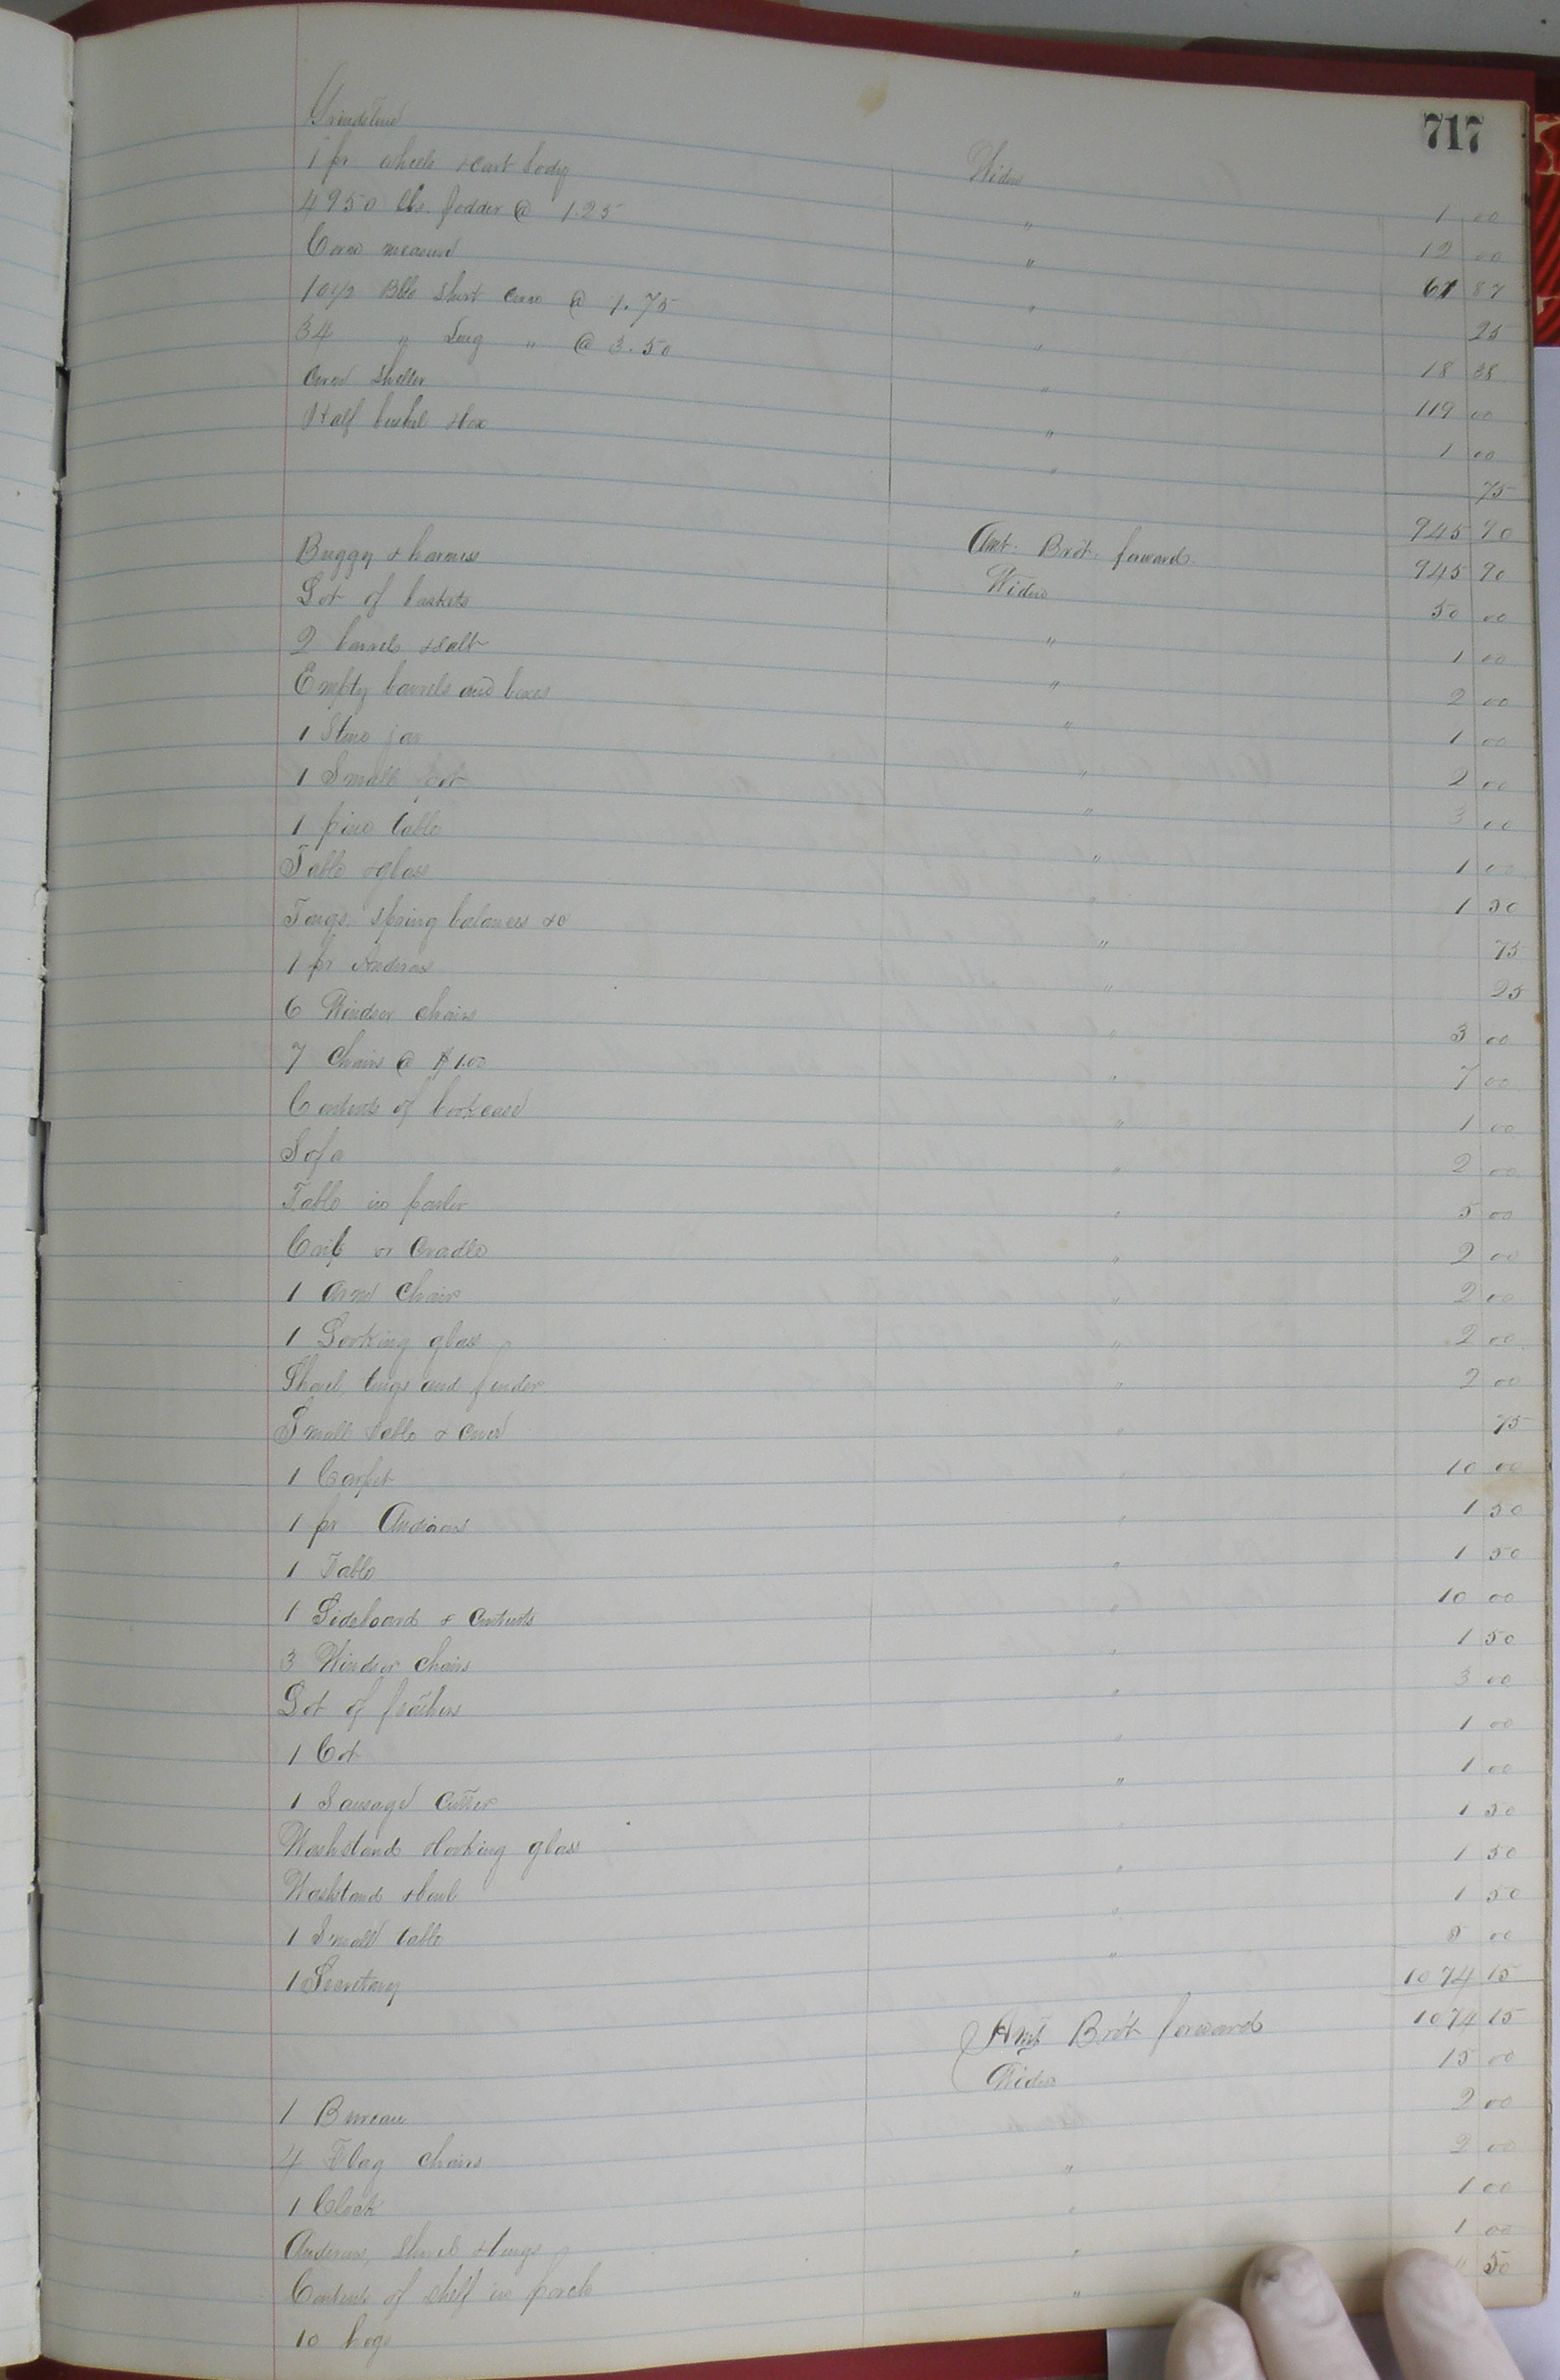 717
Grindstone Widow 1 00
1 pr wheels & cart body " 12 00
4950 lbs. fodder @ 1.25 " 61 87
Corn measure " 25
10 1/2 Bbls short corn @ 1.75 " 18 38
34 " Long " @ 3.50 " 119 00
Corn sheller " 1 00
Half bushel & box " 75
945 90
Amt. Bro't. forward 945 90
Buggy & harness Widow 50 00
Lot of baskets " 1 00
2 barrels & salt " 2 00
Empty barrels and boxes " 1 00
1 Stone jar " 2 00
1 Small pot " 3 00
1 pine table " 1 00
Table & glass " 1 50
Tongs, spring balances &c " 75
1 pr Andirons " 25
6 Windsor chairs " 3 00
7 Chairs @ $1.00 " 7 00
Contents of bookcase " 1 00
Sofa " 2 00
Table in parlor " 5 00
Crib or Cradle " 2 00
1 Arm Chair " 2 00
1 Looking glass " 2 00
Shovel, tongs and fender " 2 00
Small table & cover " 75
1 Carpet " 10 00
1 pr Andirons " 1 50
1 Table " 1 50
1 Sideboard & Contents " 10 00
3 Windsor chairs " 1 50
Lot of feathers " 3 00
1 Cot " 1 00
1 Sausage Cutter " 1 00
Washstand & looking glass " 1 50
Washstand & bowl " 1 50
1 Small table " 1 50
1 Secretary " 5 00
1074 15
Amt Bro't forward 1074 15
1 Bureau Widow 15 00
4 Flag chairs " 2 00
1 Clock " 2 00
Andirons, shovel & tongs " 1 00
Contents of shelf in porch " 1 00
10 hogs " 50